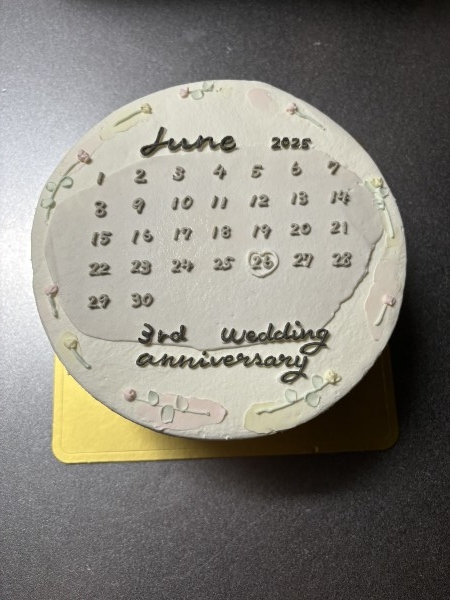 June 2025
1 2 3 4 5 6 7
8 9 10 11 12 13 14
15 16 17 18 19 20 21
22 23 24 25 26 27 28
29 30
3rd wedding
anniversary